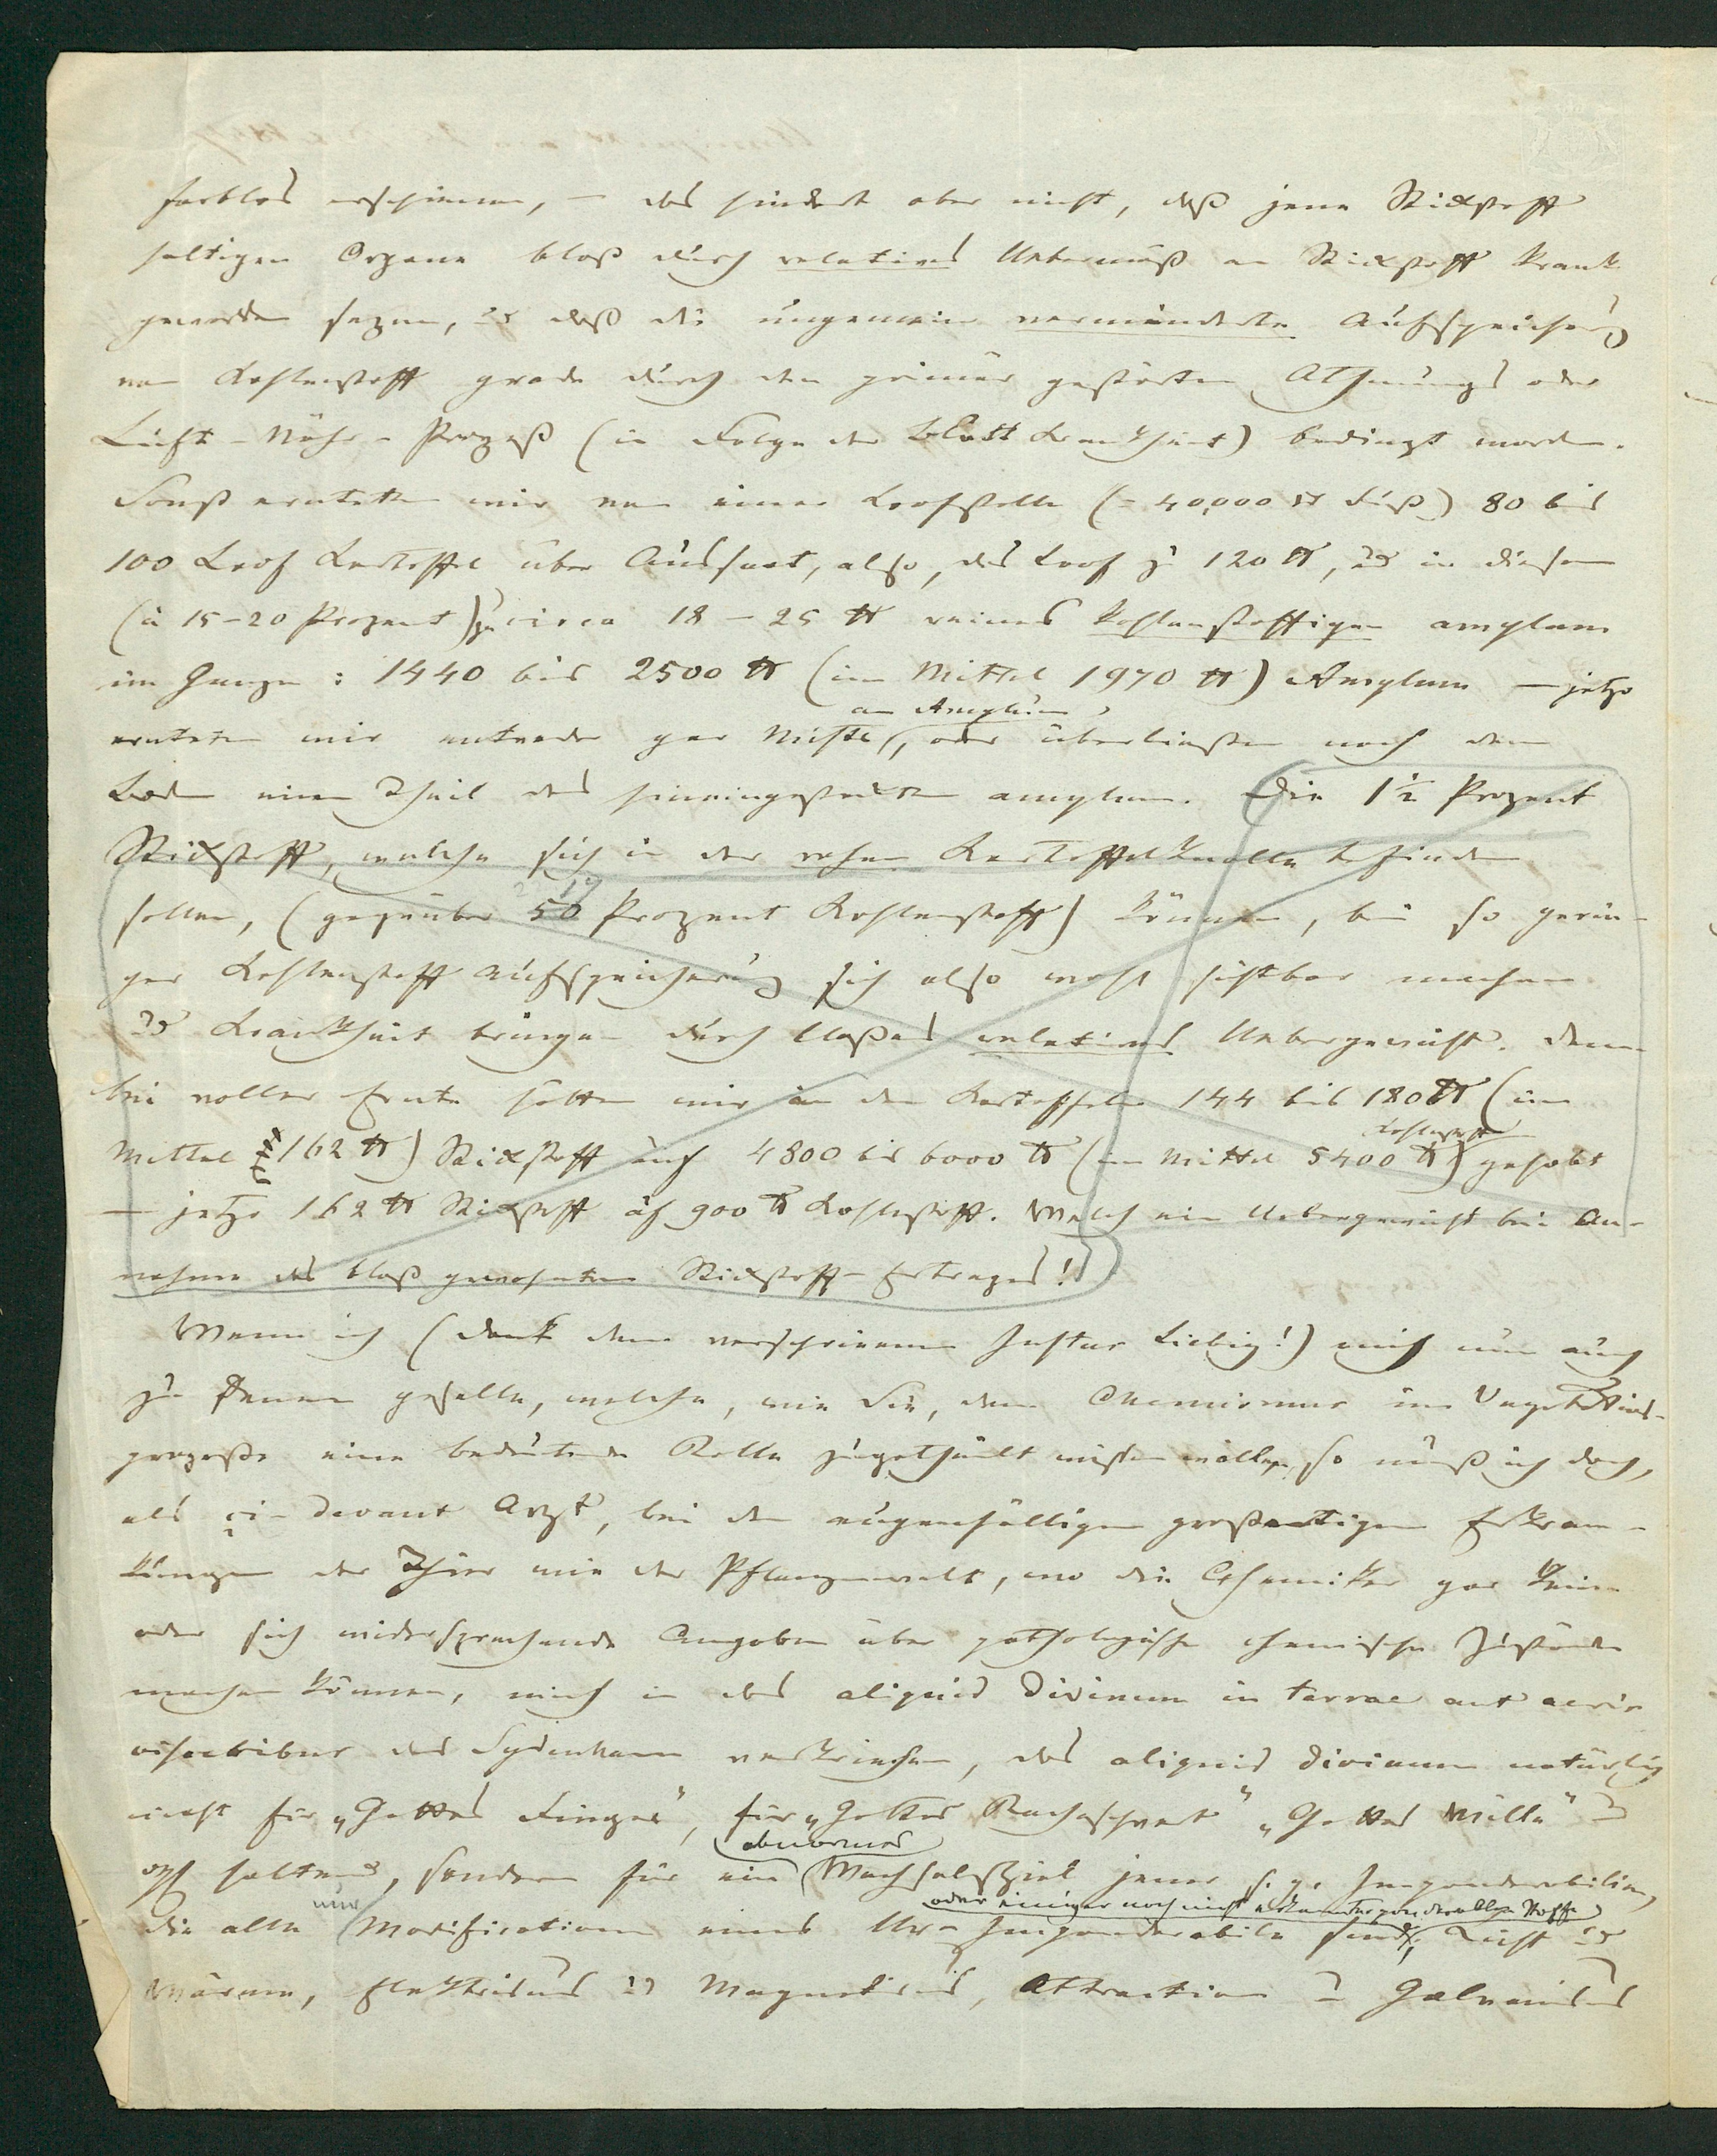 farblos erschienen, – das hindert aber nicht, daß jene Stickstoff
haltigen Organe bloß durch relatives Uebermaß an Stickstoff krank
geworden seyen, u daß die ungemein verminderte Aufspeicherung
von Kohlenstoff grade durch den primär gestörten Athmungs oder
Luft-Nähr-Prozeß (in Folge der Blatt Krankheit) bedingt worden.
Sonst ernteten wir von einer Loofstelle (= 40,000 □ Fuß) 80 bis
100 Loof Kartoffel über Aussaat, also, das Loof zu 120 ℔, u in diesem
(à 15-20 Prozent) zu circa 18 – 25 ℔ reines kohlenstoffigen amylum
im Ganzen : 1440 bis 2500 ℔ (im Mittel 1970 ℔) Amylum – jetzo
an Amylum,
ernteten wir entweder gar Nichts, oder überließen noch dem
Boden einen Theil des hineingesteckten amylum. Die 1½ Prozent
Stickstoff, welche sich in der rohen Kartoffelknolle befinden
sollen, (gegenüber 50 Prozent Kohlenstoff) können, bei so gerin-
ger Kohlenstoff Aufspeicherung sich also wohl sichtbar machen
u Krankheit bringen durch bloßes relatives Uebergewicht. Denn
bei voller Ernte hätten wir in den Kartoffeln 144 bis 180 ℔ (im
Kohlenstoff
Mittel 162 ℔) Stickstoff auf 4800 bis 6000 ℔ (im Mittel 5400 ℔) gehabt
– jetzo 162 ℔ Stickstoff auf 900 ℔ Kohlenstoff. Welch ein Uebergewicht bei An-
nahme des bloß gewohnten Stickstoff-Ertrages!
Wenn ich (Dank dem verschrienen Justus Liebig!) mich nun auch
zu Denen geselle, welche, wie Sie, dem Chemismus im Vegetations-
prozesse eine bedeutende Rolle zugetheilt wissen wollen, so muß ich doch,
als ci-devant Arzt, bei den augenfälligen großartigen Erkran-
kungen der Thier wie der Pflanzenwelt, wo die Chemiker gar keine
oder sich widersprechende Angaben über pathologische chemische Zustände
machen können, mich in das aliquid divinum in terrae aut aeris
visceribus des Sydenham verkriechen, das aliquid divinum natürlich
nicht für „Gottes Finger", für „Gottes Racheschwert" „Gottes Wille" u
abnormes
haltend, sondern für ein Wechselspiel jener s. g. Imponderabilien,
nur
oder einiger noch nicht erkannter ponderablen Stoffe
die alle Modificationen eines Ur-Imponderabile sind, Licht u
Wärme, Elektrismus u Magnetismus, Attraction u Galvanismus